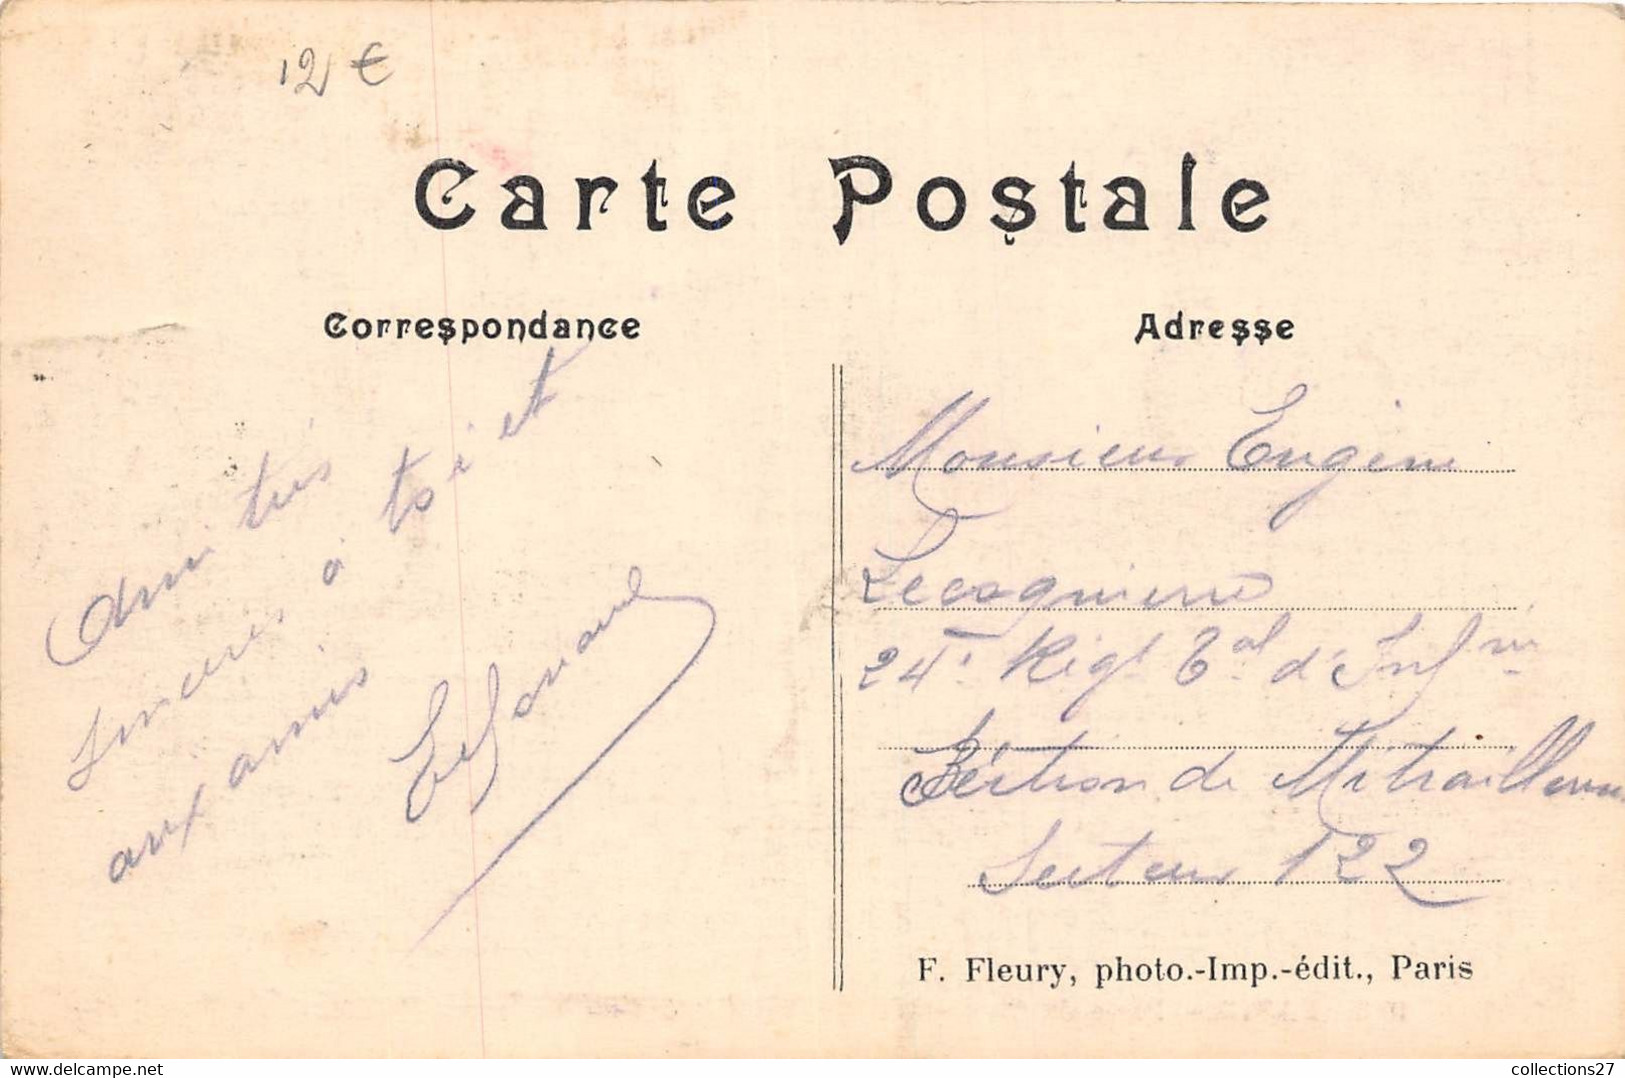 12 €
Carte Postale
Correspondance
Adresse
Ami très
sincères à toi et
aux amis
Monsieur Eugène
24e Rigt Tal d'Infrie
Section de Mitrailleuses
Secteur 122
F. Fleury, photo.-Imp.-édit., Paris
delcampe.net
collections27